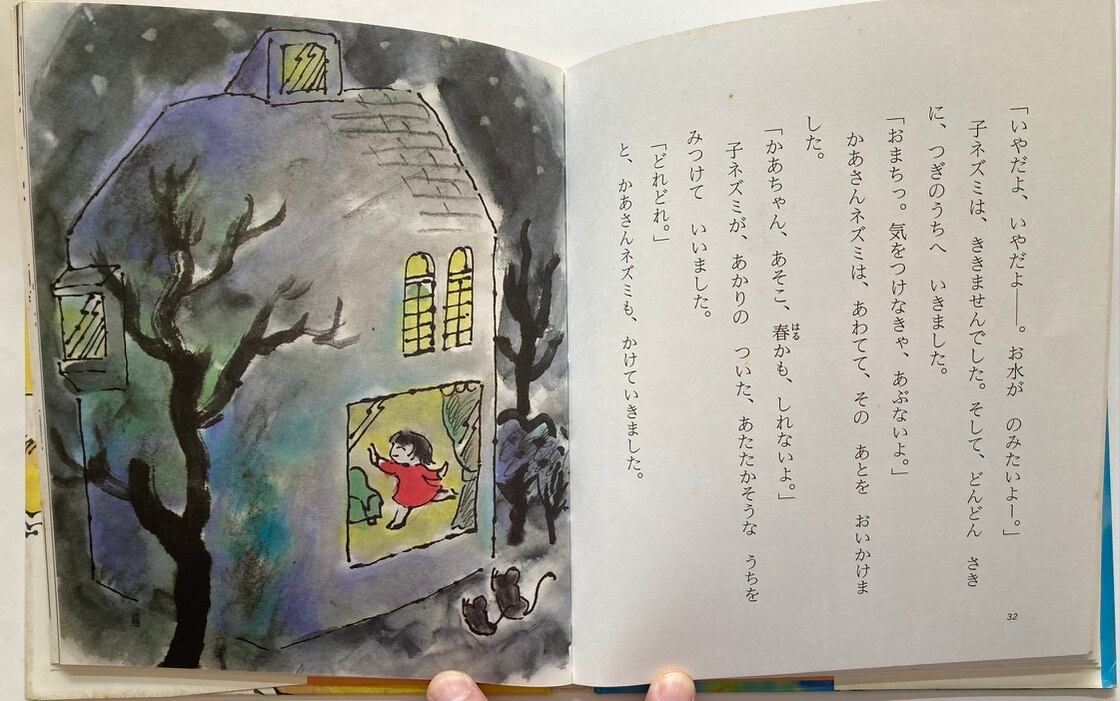 「いやだよ、いやだよ――。お水が　のみたいよー。」
子ネズミは、ききませんでした。そして、どんどん　さき
に、つぎのうちへ　いきました。
「おまちっ。気をつけなきゃ、あぶないよ。」
かあさんネズミは、あわてて、その　あとを　おいかけま
した。
「かあちゃん、あそこ、春かも、しれないよ。」
はる
子ネズミが、あかりの　ついた、あたたかそうな　うちを
みつけて　いいました。
「どれどれ。」
と、かあさんネズミも、かけていきました。
32
33